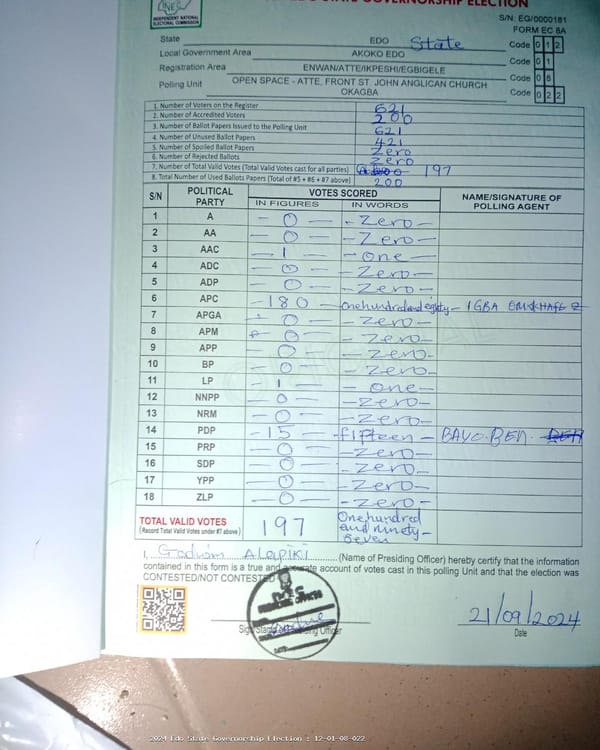 EDO STATE GOVERNORSHIP ELECTION
INEC
INDEPENDENT NATIONAL
ELECTORAL COMMISSION
S/N: EG/0000181
FORM EC 8A
State EDO State Code 0 1 2
Local Government Area AKOKO EDO Code 0 1
Registration Area ENWAN/ATTE/IKPESHI/EGBIGELE Code 0 8
Polling Unit OPEN SPACE - ATTE, FRONT ST. JOHN ANGLICAN CHURCH OKAGBA Code 0 2 2
1. Number of Voters on the Register 621
2. Number of Accredited Voters 200
3. Number of Ballot Papers Issued to the Polling Unit 621
4. Number of Unused Ballot Papers 421
5. Number of Spoiled Ballot Papers Zero
6. Number of Rejected Ballots Zero
7. Number of Total Valid Votes (Total Valid Votes cast for all parties) 197
8. Total Number of Used Ballots Papers (Total of #5 + #6 + #7 above) 200
S/N POLITICAL PARTY VOTES SCORED NAME/SIGNATURE OF POLLING AGENT
IN FIGURES IN WORDS
1 A - 0 - - Zero -
2 AA - 0 - - Zero -
3 AAC - 1 - - One -
4 ADC - 0 - - Zero -
5 ADP - 0 - - Zero -
6 APC - 180 - One hundred and eighty - IGBA
7 APGA - 0 - - Zero -
8 APM - 0 - - Zero -
9 APP - 0 - - Zero -
10 BP - 0 - - Zero -
11 LP - 1 - - One -
12 NNPP - 0 - - Zero -
13 NRM - 0 - - Zero -
14 PDP - 15 - - fifteen - BAYO. BEN.
15 PRP - 0 - - Zero -
16 SDP - 0 - - Zero -
17 YPP - 0 - - Zero -
18 ZLP - 0 - - Zero -
TOTAL VALID VOTES 197 One hundred and ninety-Seven
(Record Total Valid Votes under #7 above)
I, Godwin Alapiki (Name of Presiding Officer) hereby certify that the information
contained in this form is a true and accurate account of votes cast in this polling Unit and that the election was
CONTESTED/NOT CONTESTED
Sign/Stamp Officer
21/09/2024
Date
2024 Edo State Governorship Election : 12-01-08-022